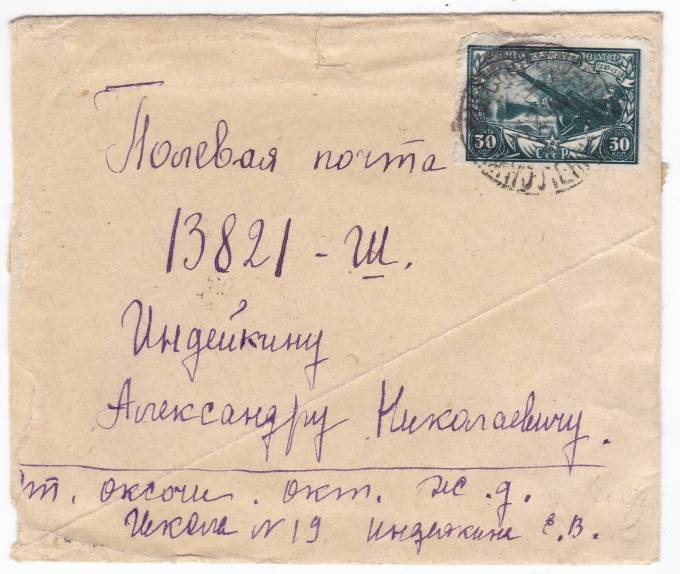 30 КОП СССР 30 КОП
Полевая почта
13821-Ш.
Индейкину
Александру Николаевичу.
ст. оксочи. окт. ж.д.
Школа N 19 Индейкина Е.В.